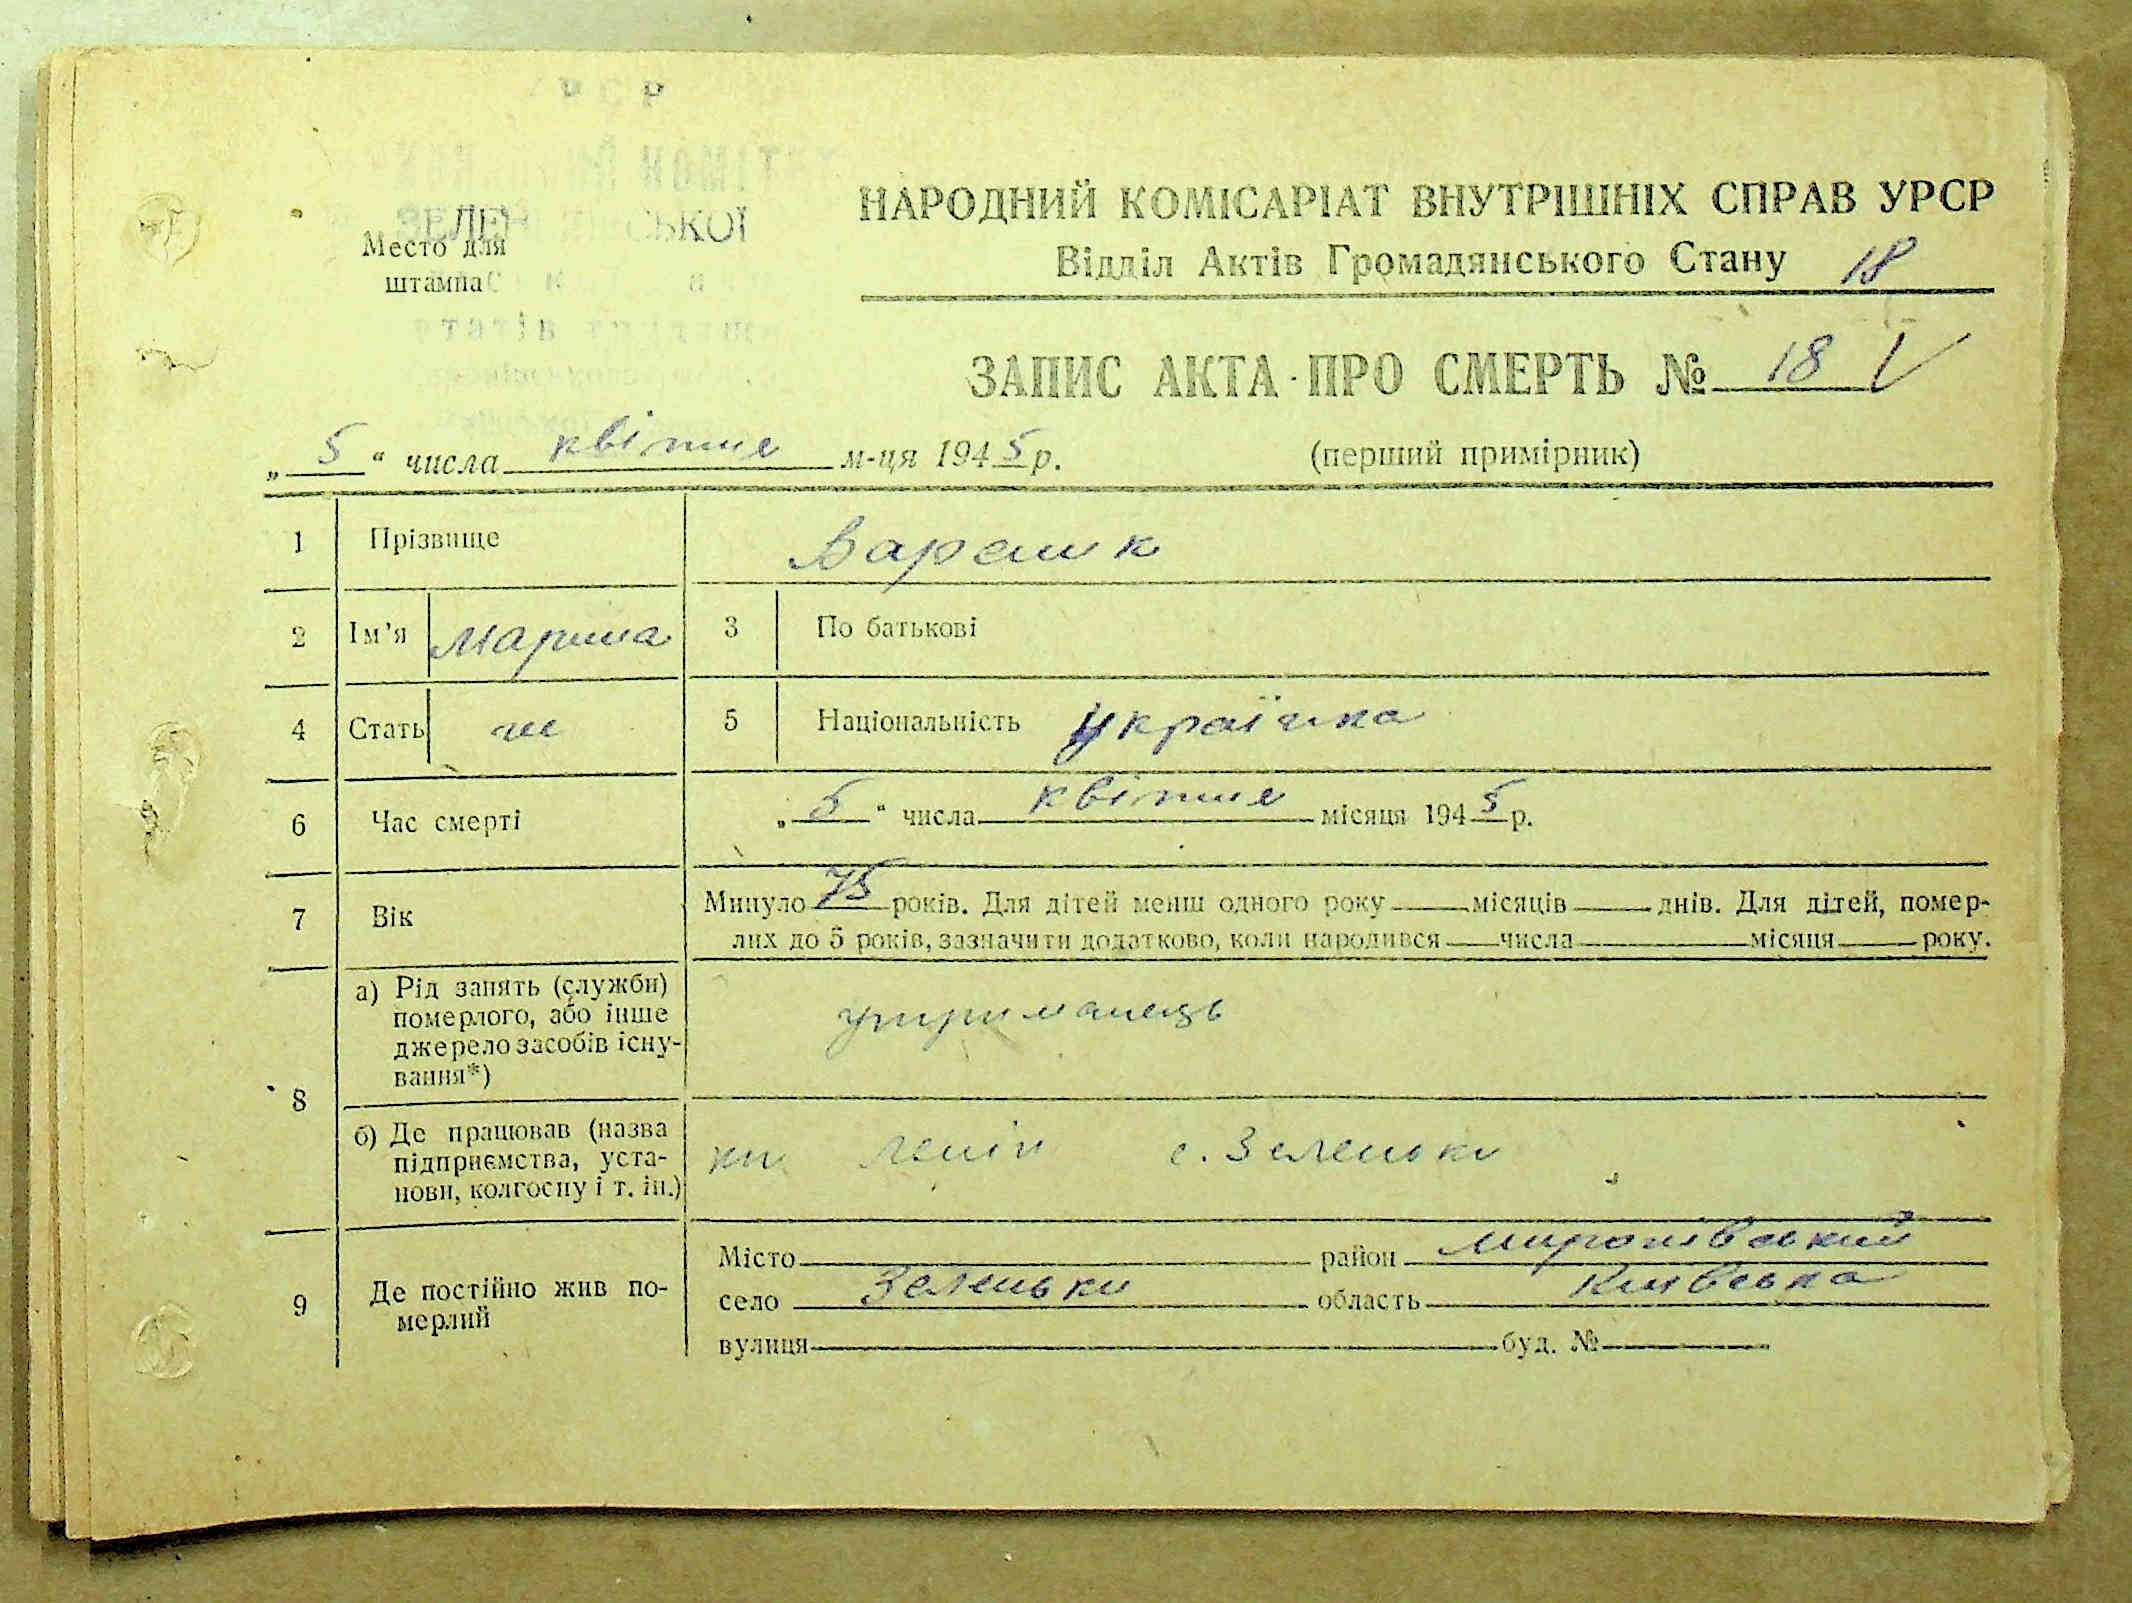 Место для
штампа
НАРОДНИЙ КОМІСАРІАТ ВНУТРІШНІХ СПРАВ УРСР
Відділ Актів Громадянського Стану 18
ЗАПИС АКТА ПРО СМЕРТЬ № 18
„ 5 “ числа квітня м-ця 1945 р. (перший примірник)
1 Прізвище
2 Ім’я Марина 3 По батькові
4 Стать ж 5 Національність Українка
6 Час смерті „ 5 “ числа квітня місяця 1945 р.
7 Вік Минуло 75 років. Для дітей менш одного року місяців днів. Для дітей, помер-
лих до 5 років, зазначити додатково, коли народився числа місяця року.
8 а) Рід занять (служби)
померлого, або інше
джерело засобів існу-
вання*)
утриманець
б) Де працював (назва
підприємства, уста-
нови, колгоспу і т. ін.)
Лені с. Зеленьки
9 Де постійно жив по-
мерлий
Місто район Миронівський
село Зеленьки область Київська
вулиця буд. №